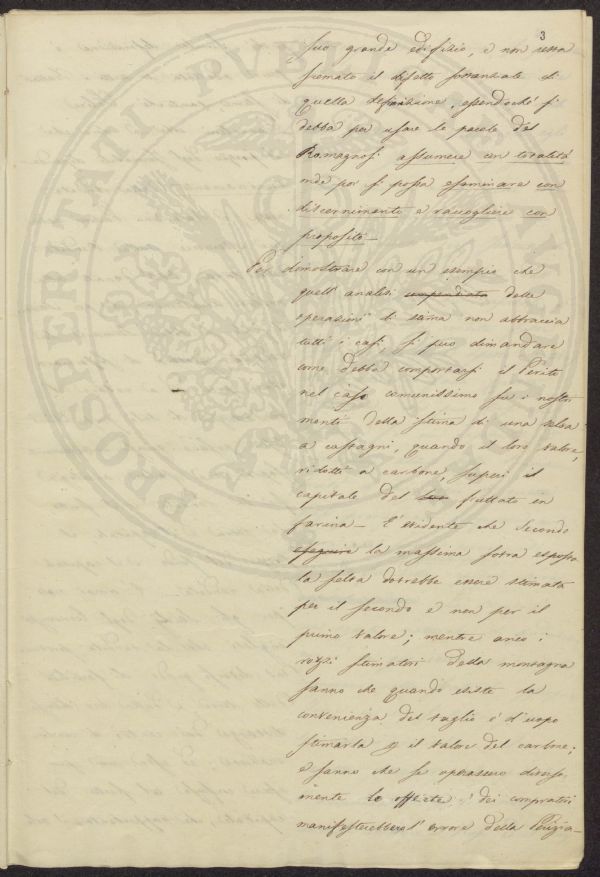 3
suo grande edifizio, e non resta
scemato il difetto sostanziale di
quella definizione, essendochè si
debba per usare le parole del
Romagnosi assumere con totalità
onde poi si possa esaminare con
discernimento e raccogliere con
proposito_
Per dimostrare con un esempio che
quell'analisi compendiata delle
operazioni di stima non abbraccia
tutti i casi, si può dimandare
come debba comportarsi il Perito
nel caso comunissimo su i nostri
monti della stima di una selva
a castagni, quando il loro valore,
ridotti a carbone, superi il
capitale del suo fruttato in
farina_ È evidente che secondo
eseguire la massima sovra esposta
la selva dovrebbe essere stimata
per il secondo e non per il
primo valore; mentre anco i
rozzi stimatori della montagna
sanno che quando esiste la
convenienza del taglio è d'uopo
stimarla p il valore del carbone;
e sanno che se operassero diversa
mente le offerte dei compratori
manifesterebbero l'errore della Perizia_
PROSPERITATI PVBLICAE AVG